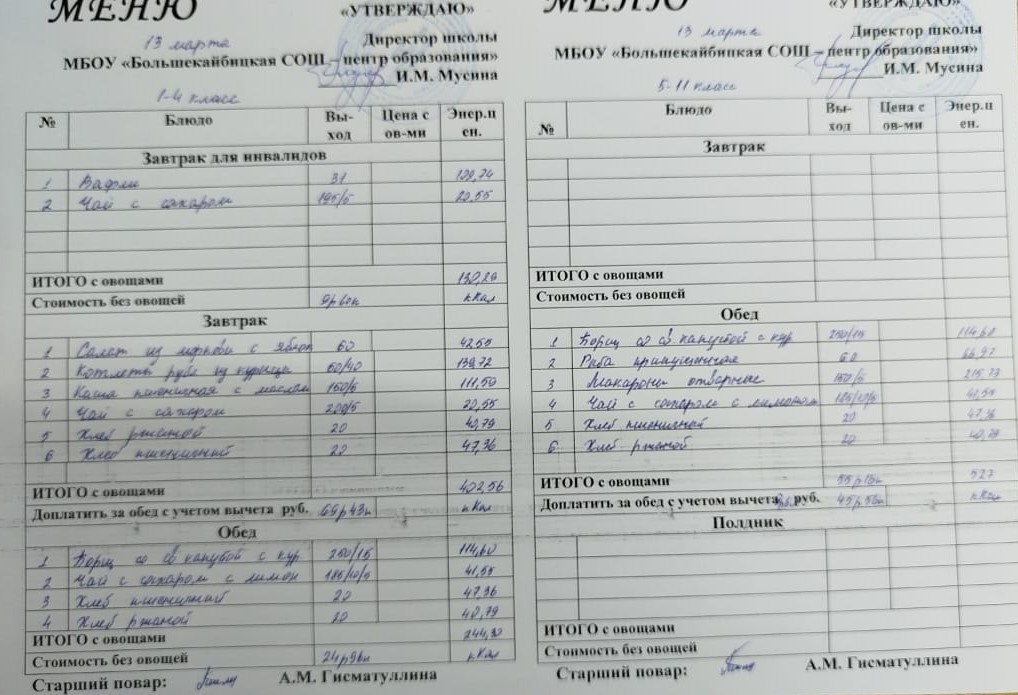 МЕНЮ
«УТВЕРЖДАЮ»
13 марта
Директор школы
МБОУ «Большекайбицкая СОШ – центр образования»
И.М. Мусина
1-4 класс
№ Блюдо Вы-ход Цена с ов-ми Энер.ц ен.
Завтрак для инвалидов
1 Вафли 31
2 Чай с сахаром 195/5 20,55
ИТОГО с овощами 130,29
Стоимость без овощей 9р60к кКал
Завтрак
1 Салат из моркови с яблок 60 42,55
2 Котлеты рубл из курицы 60/40 139,72
3 Каша пшеничная с маслом 150/5 111,59
4 Чай с сахаром 200/5 20,55
5 Хлеб ржаной 20 40,79
6 Хлеб пшеничный 20 47,36
ИТОГО с овощами 402,56
Доплатить за обед с учетом вычета руб. 69р43к кКал
Обед
1 Борщ со св капустой с кур 250/15 114,60
2 Чай с сахаром с лимон 185/10/5 41,55
3 Хлеб пшеничный 20 47,36
4 Хлеб ржаной 20 40,79
ИТОГО с овощами 244,30
Стоимость без овощей 24р96к кКал
Старший повар: А.М. Гисматуллина
МЕНЮ
«УТВЕРЖДАЮ»
13 марта
Директор школы
МБОУ «Большекайбицкая СОШ – центр образования»
И.М. Мусина
5-11 класс
№ Блюдо Вы-ход Цена с ов-ми Энер.ц ен.
Завтрак
ИТОГО с овощами
Стоимость без овощей
Обед
1 Борщ со св капустой с кур 250/15 114,60
2 Рыба припущенная 60 66,97
3 Макароны отварные 150/5 215,73
4 Чай с сахаром с лимоном 185/10/5 41,55
5 Хлеб пшеничный 20 47,36
6 Хлеб ржаной 20 40,79
ИТОГО с овощами 527
Доплатить за обед с учетом вычета руб. 45р50к кКал
Полдник
ИТОГО с овощами
Стоимость без овощей
Старший повар: А.М. Гисматуллина